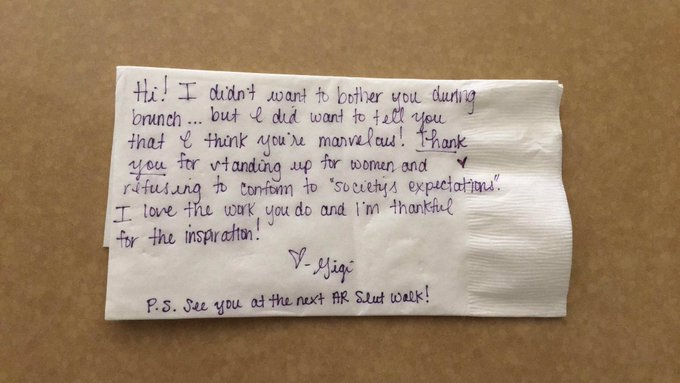 Hi! I didn't want to bother you during
brunch... but I did want to tell you
that I think you're marvelous! Thank
you for standing up for women and ♥
refusing to conform to "society's expectations".
I love the work you do and I'm thankful
for the inspiration!
♡-Gigi
P.S. See you at the next AR Slut Walk!